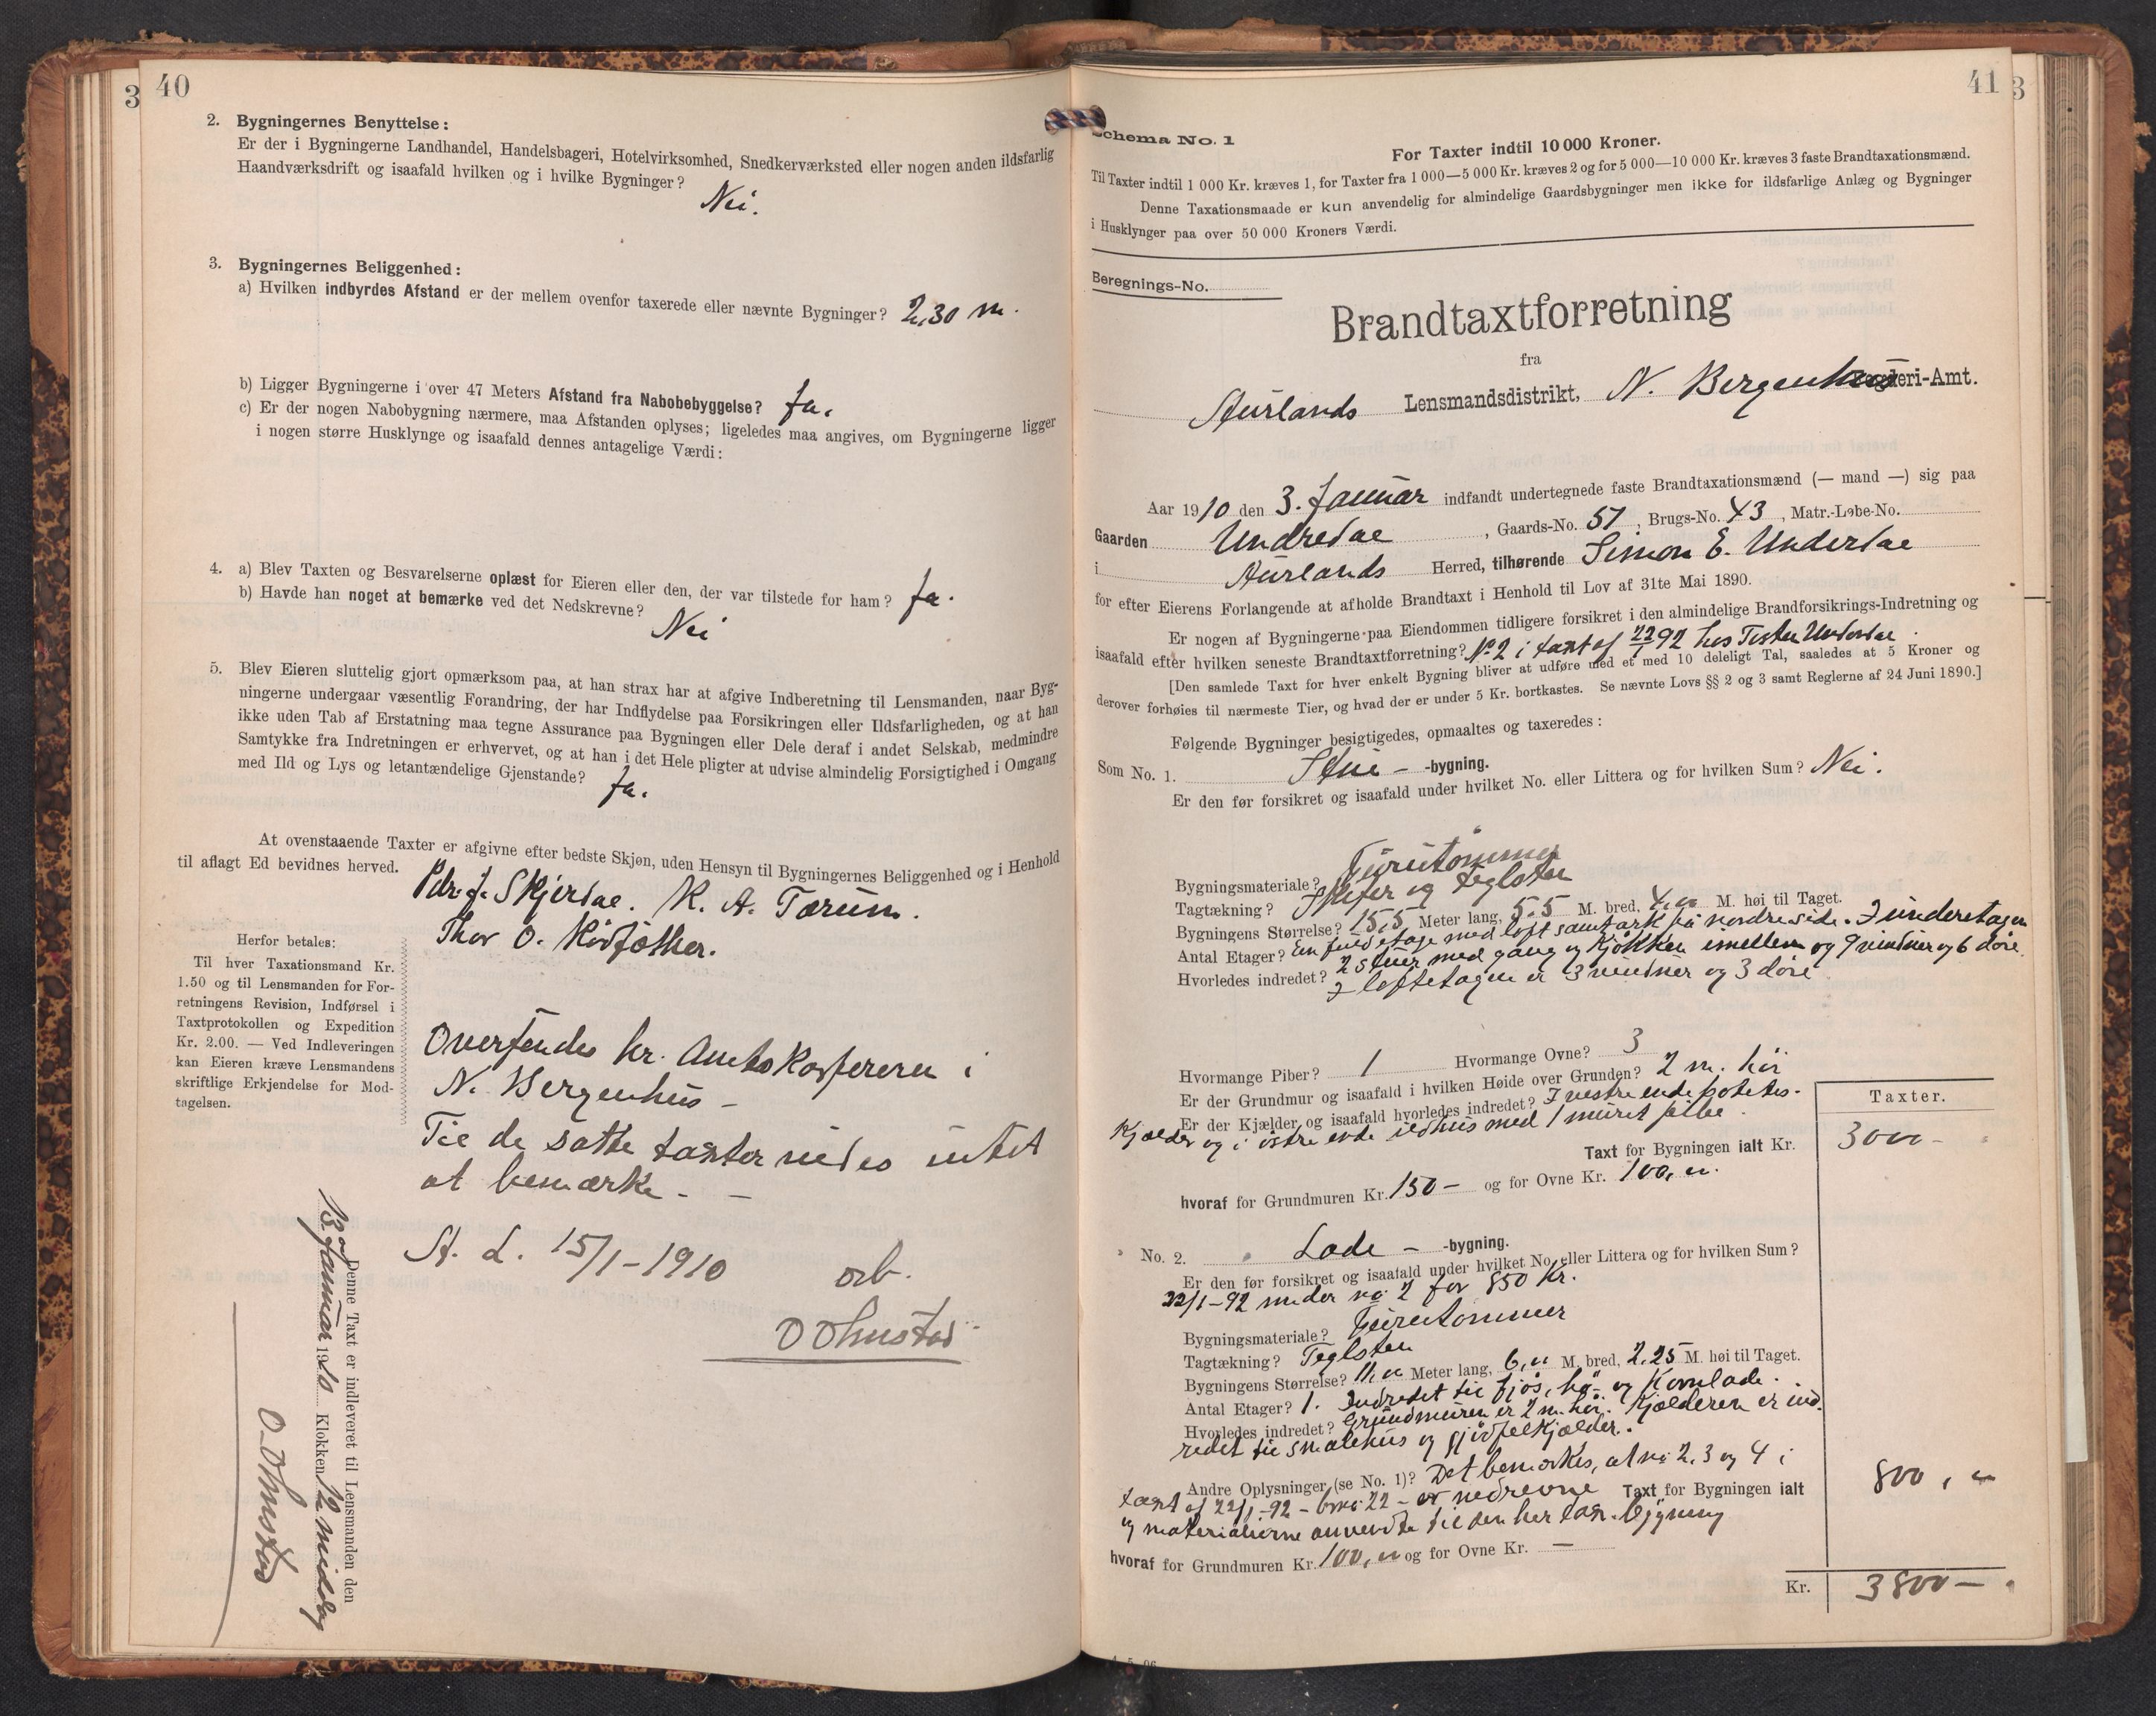 3 40
2. Bygningernes Benyttelse:
Er der i Bygningerne Landhandel, Handelsbageri, Hotelvirksomhed, Snedkerværksted eller nogen anden ildsfarlig
Haandværksdrift og isaafald hvilken og i hvilke Bygninger?
Nei.
3. Bygningernes Beliggenhed:
a) Hvilken indbyrdes Afstand er der mellem ovenfor taxerede eller nævnte Bygninger? 2,30 m.
b) Ligger Bygningerne i over 47 Meters Afstand fra Nabobebyggelse? Ja.
c) Er der nogen Nabobygning nærmere, maa Afstanden oplyses; ligeledes maa angives, om Bygningerne ligger
i nogen større Husklynge og isaafald dennes antagelige Værdi:
4. a) Blev Taxten og Besvarelserne oplæst for Eieren eller den, der var tilstede for ham? Ja.
b) Havde han noget at bemærke ved det Nedskrevne?
Nei
5. Blev Eieren sluttelig gjort opmærksom paa, at han strax har at afgive Indberetning til Lensmanden, naar Byg-
ningerne undergaar væsentlig Forandring, der har Indflydelse paa Forsikringen eller Ildsfarligheden, og at han
ikke uden Tab af Erstatning maa tegne Assurance paa Bygningen eller Dele deraf i andet Selskab, medmindre
Samtykke fra Indretningen er erhvervet, og at han i det Hele pligter at udvise almindelig Forsigtighed i Omgang
med Ild og Lys og letantændelige Gjenstande?
Ja.
At ovenstaaende Taxter er afgivne efter bedste Skjøn, uden Hensyn til Bygningernes Beliggenhed og i Henhold
til aflagt Ed bevidnes herved.
J. Skjerdal. K. A. Tærum.
Thor O.
Herfor betales:
Til hver Taxationsmand Kr.
1.50 og til Lensmanden for For-
retningens Revision, Indførsel i
Taxtprotokollen og Expedition
Kr. 2.00. — Ved Indleveringen
kan Eieren kræve Lensmandens
skriftlige Erkjendelse for Mod-
tagelsen.
Oversendes hr. Amtskasereren i
N. Bergenhus -
Til de satte taxter vides intet
at bemærke. -
A. L. 15/1-1910 orb.
O Ohnstad.
Denne Taxt er indleveret til Lensmanden den
13 Januar 1910 Klokken 12 middag
O. Ohnstad
41 3
Schema No. 1
For Taxter indtil 10 000 Kroner.
Til Taxter indtil 1 000 Kr. kræves 1, for Taxter fra 1 000—5 000 Kr. kræves 2 og for 5 000—10 000 Kr. kræves 3 faste Brandtaxationsmænd.
Denne Taxationsmaade er kun anvendelig for almindelige Gaardsbygninger men ikke for ildsfarlige Anlæg og Bygninger
i Husklynger paa over 50 000 Kroners Værdi.
Beregnings-No.
Brandtaxtforretning
fra
Aurlands Lensmandsdistrikt, N. Bergenhus Fogderi-Amt.
Aar 1910 den 3. Januar indfandt undertegnede faste Brandtaxationsmænd (— mand —) sig paa
Gaarden Undredal, Gaards-No. 51, Brugs-No. 43, Matr.-Løbe-No.
i Aurlands Herred, tilhørende Simon E. Underdal
for efter Eierens Forlangende at afholde Brandtaxt i Henhold til Lov af 31te Mai 1890.
Er nogen af Bygningerne paa Eiendommen tidligere forsikret i den almindelige Brandforsikrings-Indretning og
isaafald efter hvilken seneste Brandtaxtforretning? No 2 i taxt af 22/1 92 hos Underdal.
[Den samlede Taxt for hver enkelt Bygning bliver at udføre med et med 10 deleligt Tal, saaledes at 5 Kroner og
derover forhøies til nærmeste Tier, og hvad der er under 5 Kr. bortkastes. Se nævnte Lovs §§ 2 og 3 samt Reglerne af 24 Juni 1890.]
Følgende Bygninger besigtigedes, opmaaltes og taxeredes:
Som No. 1. Stue - -bygning.
Er den før forsikret og isaafald under hvilket No. eller Littera og for hvilken Sum? Nei.
Bygningsmateriale? Furutømmer
Tagtækning? Skifer og teglsten
Bygningens Størrelse? 15,5 Meter lang, 5,5 M. bred, 4,00 M. høi til Taget.
Antal Etager? En fuld etage med loft samt ark på nordre side. I underetagen
Hvorledes indredet? 2 stuer med gang og kjøkken imellem og 9 vinduer og 6 døre.
I loftetagen er 3 vinduer og 3 døre
Hvormange Piber? 1 Hvormange Ovne? 3
Er der Grundmur og isaafald i hvilken Høide over Grunden? 2 m. høi
Er der Kjælder og isaafald hvorledes indredet? I vestre ende potetes-
kjælder og i østre ende ildhus med 1 muret pibe.
Taxter.
Taxt for Bygningen ialt Kr. 3000 -
hvoraf for Grundmuren Kr. 150 - og for Ovne Kr. 100,00.
No. 2. Lade - -bygning.
Er den før forsikret og isaafald under hvilket No. eller Littera og for hvilken Sum?
22/1-92 under no 2 for 850 Kr.
Bygningsmateriale? Furutømmer
Tagtækning? Teglsten
Bygningens Størrelse? 11,00 Meter lang, 6,00 M. bred, 2,25 M. høi til Taget.
Antal Etager? 1. Indredet til fjøs, hø- og kornlade.
Hvorledes indredet? Grundmuren er 2 m. høi. Kjælderen er ind-
redet til smalehus og gjødselkjælder.
Andre Oplysninger (se No. 1)? Det bemærkes, at no 2, 3 og 4 i
taxt af 22/1-92 - brno 22 - er nedrevne Taxt for Bygningen ialt 800,00
og materialierne anvendte til den her tax. bygning
hvoraf for Grundmuren Kr. 100,00 og for Ovne Kr. —
Kr. 3800 -